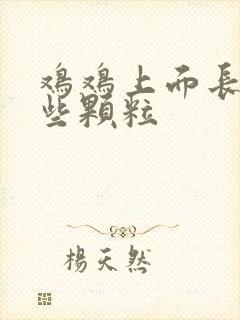 鸡鸡上而長
些顆粒
楊天然